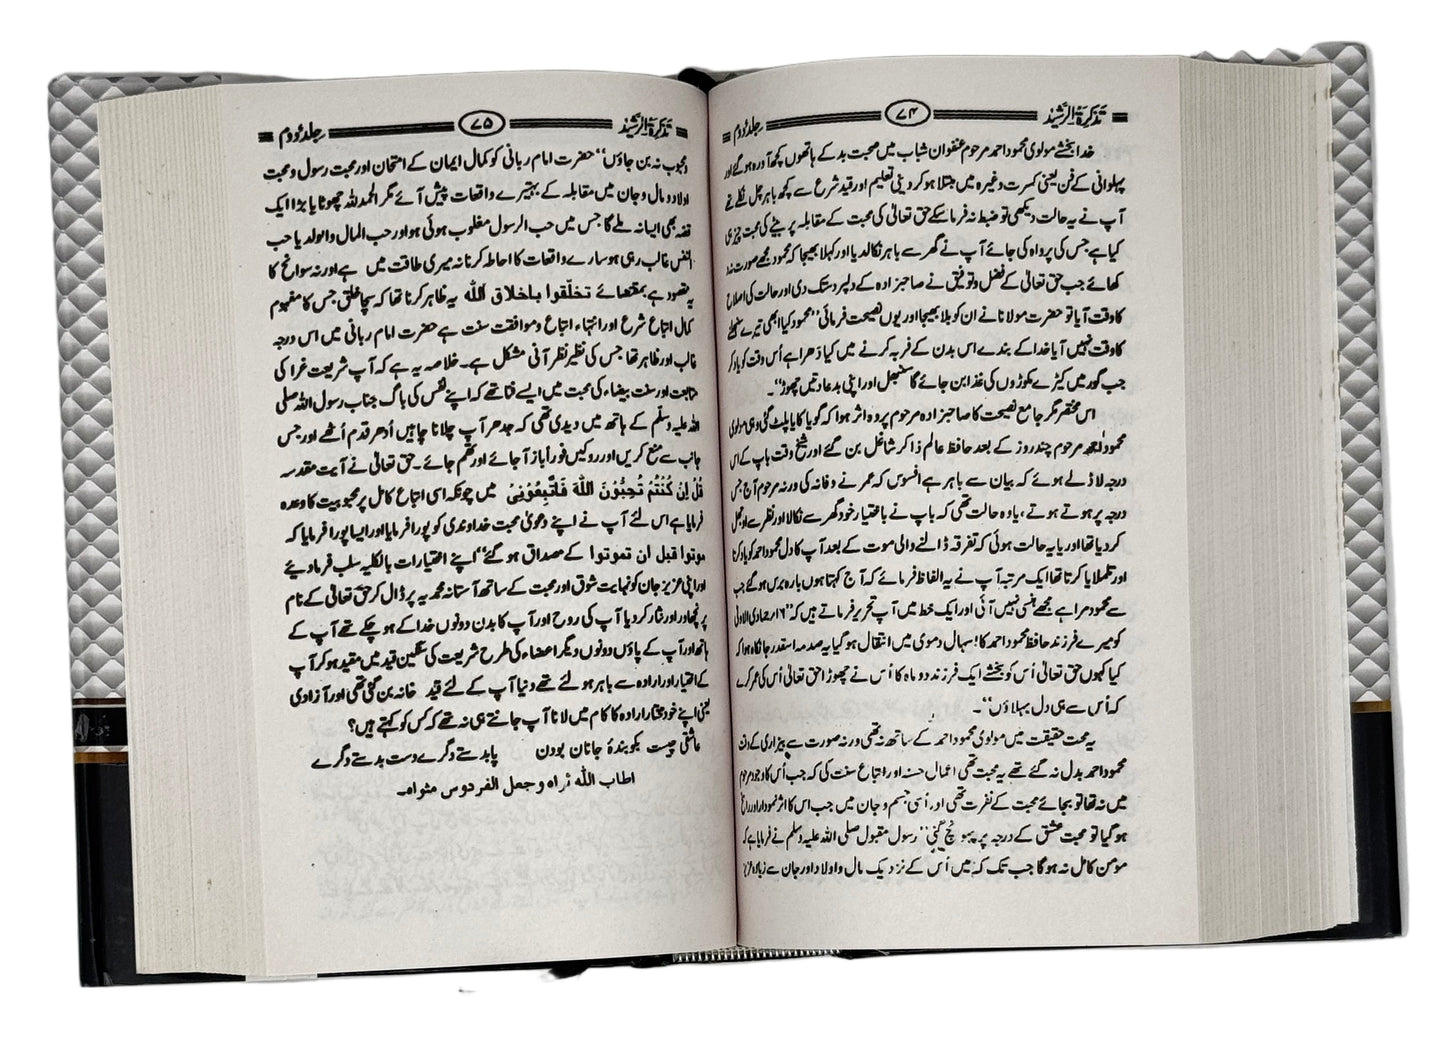 تذکرۃ الرشید ۷۴ جلد دوم
خدا بخشے مولوی محمود احمد مرحوم عنفوان شباب میں صحبت بد کے ہاتھوں کچھ آوارہ ہو گئے اور
پہلوانی کے فن یعنی کسرت وغیرہ میں جتلا ہو کر دینی تعلیم اور قید شرع سے کچھ باہر چل نکلے تھے
آپ نے یہ حالت دیکھی تو ضبط نہ فرما سکے حق تعالیٰ کی محبت کے مقابلہ پر بیٹے کی محبت چیز ہی
کیا ہے جس کی پرواہ کی جائے آپ نے گھر سے باہر نکالدیا اور کہلا بھیجا کہ محمود مجھے صورت نہ
کھائے جب حق تعالیٰ کے فضل و توفیق نے صاحبزادہ کے دلپر دستک دی اور حالت کی اصلاح
کا وقت آیا تو حضرت مولانا نے ان کو بلا بھیجا اور یوں نصیحت فرمائی ’’محمود کیا ابھی تیرے سنبھلنے
کا وقت نہیں آیا خدا کے بندے اس بدن کے فربہ کرنے میں کیا دَھرا ہے اُس وقت کو یاد کر
جب گور میں کیڑے مکوڑوں کی غذا بن جائے گا سنبھل اور اپنی بدعادتیں چھوڑ‘‘۔
اس مختصر مگر جامع نصیحت کا صاحبزادہ مرحوم پر وہ اثر ہوا کہ گویا کایا پلٹ گئی وہی مولوی
محمود احمد مرحوم چند روز کے بعد حافظ عالم ذاکر شاغل بن گئے اور شیخ وقت باپ کے اس
درجہ لاڈلے ہوئے کہ بیان سے باہر ہے افسوس کہ عمر نے وفا نہ کی ورنہ مرحوم آج جس
درجہ پر ہوتے ہوتے، یا وہ حالت تھی کہ باپ نے باختیار خود گھر سے نکالا اور نظر سے اوجھل
کر دیا تھا اور یا یہ حالت ہوئی کہ تفرقہ ڈالنے والی موت کے بعد آپ کا دل محمود احمد کو یاد کرتا
اور تلملایا کرتا تھا ایک مرتبہ آپ نے یہ الفاظ فرمائے کہ آج کہتا ہوں بارہ برس ہو گئے جب
سے محمود مرا ہے مجھے ہنسی نہیں آئی اور ایک خط میں آپ تحریر فرماتے ہیں کہ ’’۱۶؍ جمادی الاولیٰ
کو میرے فرزند حافظ محمود احمد کا اسہال دموی میں انتقال ہو گیا یہ صدمہ اسقدر جانکاہ ہوا کہ
کیا کہوں حق تعالیٰ اُس کو بخشے ایک فرزند دو ماہ کا اُس نے چھوڑا حق تعالیٰ اُس کی عمر کرے
کہ اُس سے ہی دل بہلاؤں‘‘۔
یہ محبت حقیقت میں مولوی محمود احمد کے ساتھ نہ تھی ورنہ صورت سے بیزاری کے دن
محمود احمد بدل نہ گئے تھے یہ محبت تھی اعمال حسنہ اور اتباع سنت کی کہ جب اُس کا وجود مرحوم
میں نہ تھا تو بجائے محبت کے نفرت تھی اور اُسی جسم و جان میں جب اس کا اثر نمودار اور راسخ
ہو گیا تو محبت عشق کے درجہ پر پہونچ گئی ’’رسول مقبول صلی اللہ علیہ وسلم نے فرمایا ہے کہ
مومن کامل نہ ہوگا جب تک کہ میں اُس کے نزدیک مال و اولاد اور جان سے زیادہ
تذکرۃ الرشید ۷۵ جلد دوم
محبوب نہ بن جاؤں‘‘ حضرت امام ربانی کو کمال ایمان کے امتحان اور محبت رسول و محبت
اولاد و مال و جان میں مقابلہ کے بہتیرے واقعات پیش آئے مگر الحمدللہ چھوٹا یا بڑا ایک
قصہ بھی ایسا نہ ملے گا جس میں حب الرسول مغلوب ہوئی ہو اور حب المال والولد یا حب
النفس غالب رہی ہو سارے واقعات کا احاطہ کرنا نہ میری طاقت میں ہے اور نہ سوانح کا
یہ مقصود ہے بمقتضائے تخلّقوا باخلاق اللّٰہ یہ ظاہر کرنا تھا کہ سچا خلق جس کا مفہوم
کمال اتباع شرع اور انتہاء اتباع و موافقت سنت ہے حضرت امام ربانی میں اس درجہ
غالب اور ظاہر تھا جس کی نظیر نظر آنی مشکل ہے۔ خلاصہ یہ ہے کہ آپ شریعت غرا کی
متابعت اور سنت بیضاء کی محبت میں ایسے فنا تھے کہ اپنے نفس کی باگ جناب رسول اللہ صلی
اللہ علیہ وسلّم کے ہاتھ میں دیدی تھی کہ جدھر آپ چلانا چاہیں اُدھر قدم اُٹھے اور جس
جانب سے منع کریں اور روکیں فوراً باز آ جائے اور تھم جائے۔ حق تعالیٰ نے آیت مقدسہ
قُلْ اِنْ کُنْتُمْ تُحِبُّوْنَ اللّٰہَ فَاتَّبِعُوْنِیْ میں چونکہ اسی اتباع کامل پر محبوبیت کا وعدہ
فرمایا ہے اس لئے آپ نے اپنے دعویٰ محبت خداوندی کو پورا فرمایا اور ایسا پورا فرمایا کہ
موتوا قبل ان تموتوا کے مصداق ہو گئے‘‘ اپنے اختیارات بالکلیہ سلب فرما دیئے
اور اپنی عزیز جان کو نہایت شوق اور محبت کے ساتھ آستانہ محمدیہ پر ڈال کر حق تعالیٰ کے نام
پر نچھاور اور نثار کر دیا آپ کی روح اور آپ کا بدن دونوں خدا کے ہو چکے تھے آپ کے
ہاتھ اور آپ کے پاؤں دونوں دیگر اعضاء کی طرح شریعت کی سنگین قید میں مقید ہو کر آپ
کے اختیار اور ارادہ سے باہر ہو لئے تھے دنیا آپ کے لئے قید خانہ بن گئی تھی اور آزادی
یعنی اپنے خود مختار ارادہ کا کام میں لانا آپ جانتے ہی نہ تھے کہ کس کو کہتے ہیں؟
عاشقی چیست بگو بندۂ جاناں بودن پا بدستے دگرے دست بدستے دگرے
اطاب اللّٰہ ثراہ وجعل الفردوس مثواہ۔